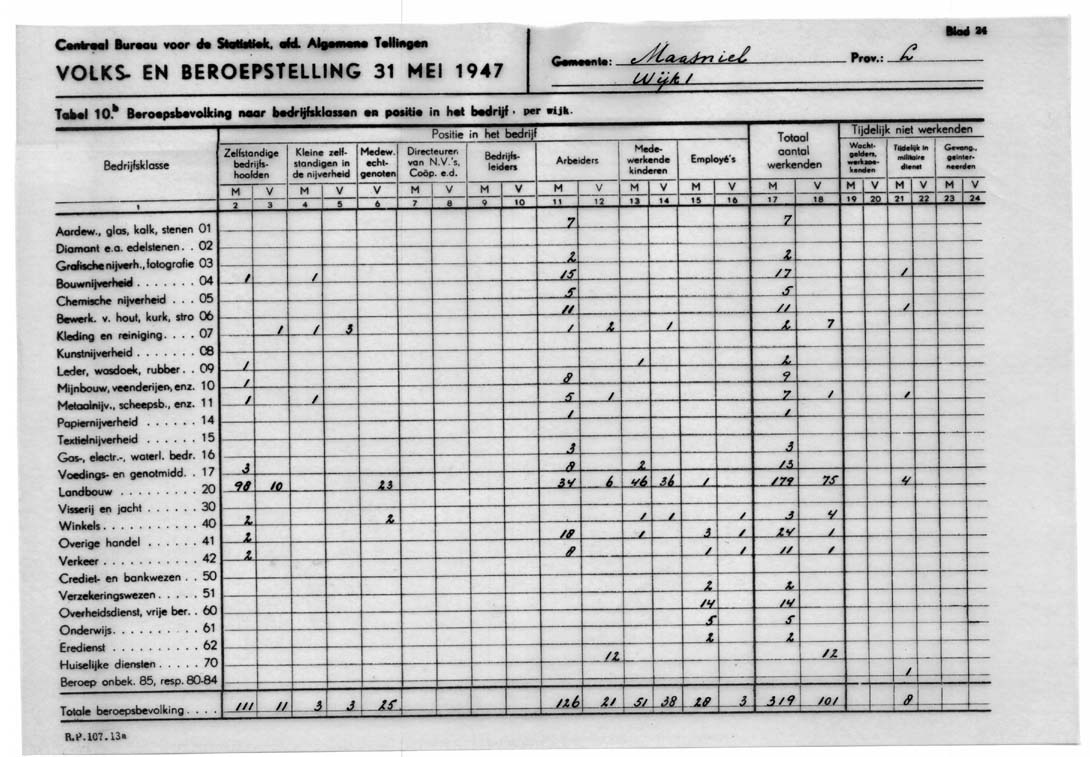 Blad 24
Centraal Bureau voor de Statistiek, afd. Algemene Tellingen
VOLKS- EN BEROEPSTELLING 31 MEI 1947
Gemeente: Maasniel Prov.: L
Wijk 1
Tabel 10.b Beroepsbevolking naar bedrijfsklassen en positie in het bedrijf, per wijk.
Bedrijfsklasse
Positie in het bedrijf
Zelfstandige bedrijfs-hoofden
Kleine zelf-standigen in de nijverheid
Medew. echt-genoten
Directeuren van N.V.'s, Coöp. e.d.
Bedrijfs-leiders
Arbeiders
Mede-werkende kinderen
Employé's
Totaal aantal werkenden
Tijdelijk niet werkenden
Wacht-gelders, werkzoe-kenden
Tijdelijk in militaire dienst
Gevang., geinter-neerden
M V M V V M V M V M V M V M V M V M V M V M V
1 2 3 4 5 6 7 8 9 10 11 12 13 14 15 16 17 18 19 20 21 22 23 24
Aardew., glas, kalk, stenen 01 7 7
Diamant e.a. edelstenen. . 02
Grafische nijverh., fotografie 03 2 2
Bouwnijverheid . . . . . . . 04 1 1 15 17 1
Chemische nijverheid . . . 05 5 5
Bewerk. v. hout, kurk, stro 06 11 11 1
Kleding en reiniging. . . . 07 1 1 3 1 2 1 2 7
Kunstnijverheid . . . . . . . 08
Leder, wasdoek, rubber. . 09 1 1 2
Mijnbouw, veenderijen, enz. 10 1 8 9
Metaalnijv., scheepsb., enz. 11 1 1 5 1 7 1 1
Papiernijverheid . . . . . . 14 1 1
Textielnijverheid . . . . . . 15
Gas-, electr.-, waterl. bedr. 16 3 3
Voedings- en genotmidd. . 17 3 8 2 13
Landbouw . . . . . . . . . 20 98 10 23 34 6 46 36 1 179 75 4
Visserij en jacht . . . . . . 30
Winkels . . . . . . . . . . . 40 2 2 1 1 1 3 4
Overige handel . . . . . . 41 2 18 1 3 1 24 1
Verkeer . . . . . . . . . . . 42 2 8 1 1 11 1
Crediet- en bankwezen . . 50
Verzekeringswezen . . . . . 51 2 2
Overheidsdienst, vrije ber. . 60 14 14
Onderwijs. . . . . . . . . . 61 5 5
Eredienst . . . . . . . . . . 62 2 2
Huiselijke diensten . . . . . 70 12 12
Beroep onbek. 85, resp. 80-84 1
Totale beroepsbevolking . . . . 111 11 3 3 25 126 21 51 38 28 3 319 101 8
R.P.107.13a